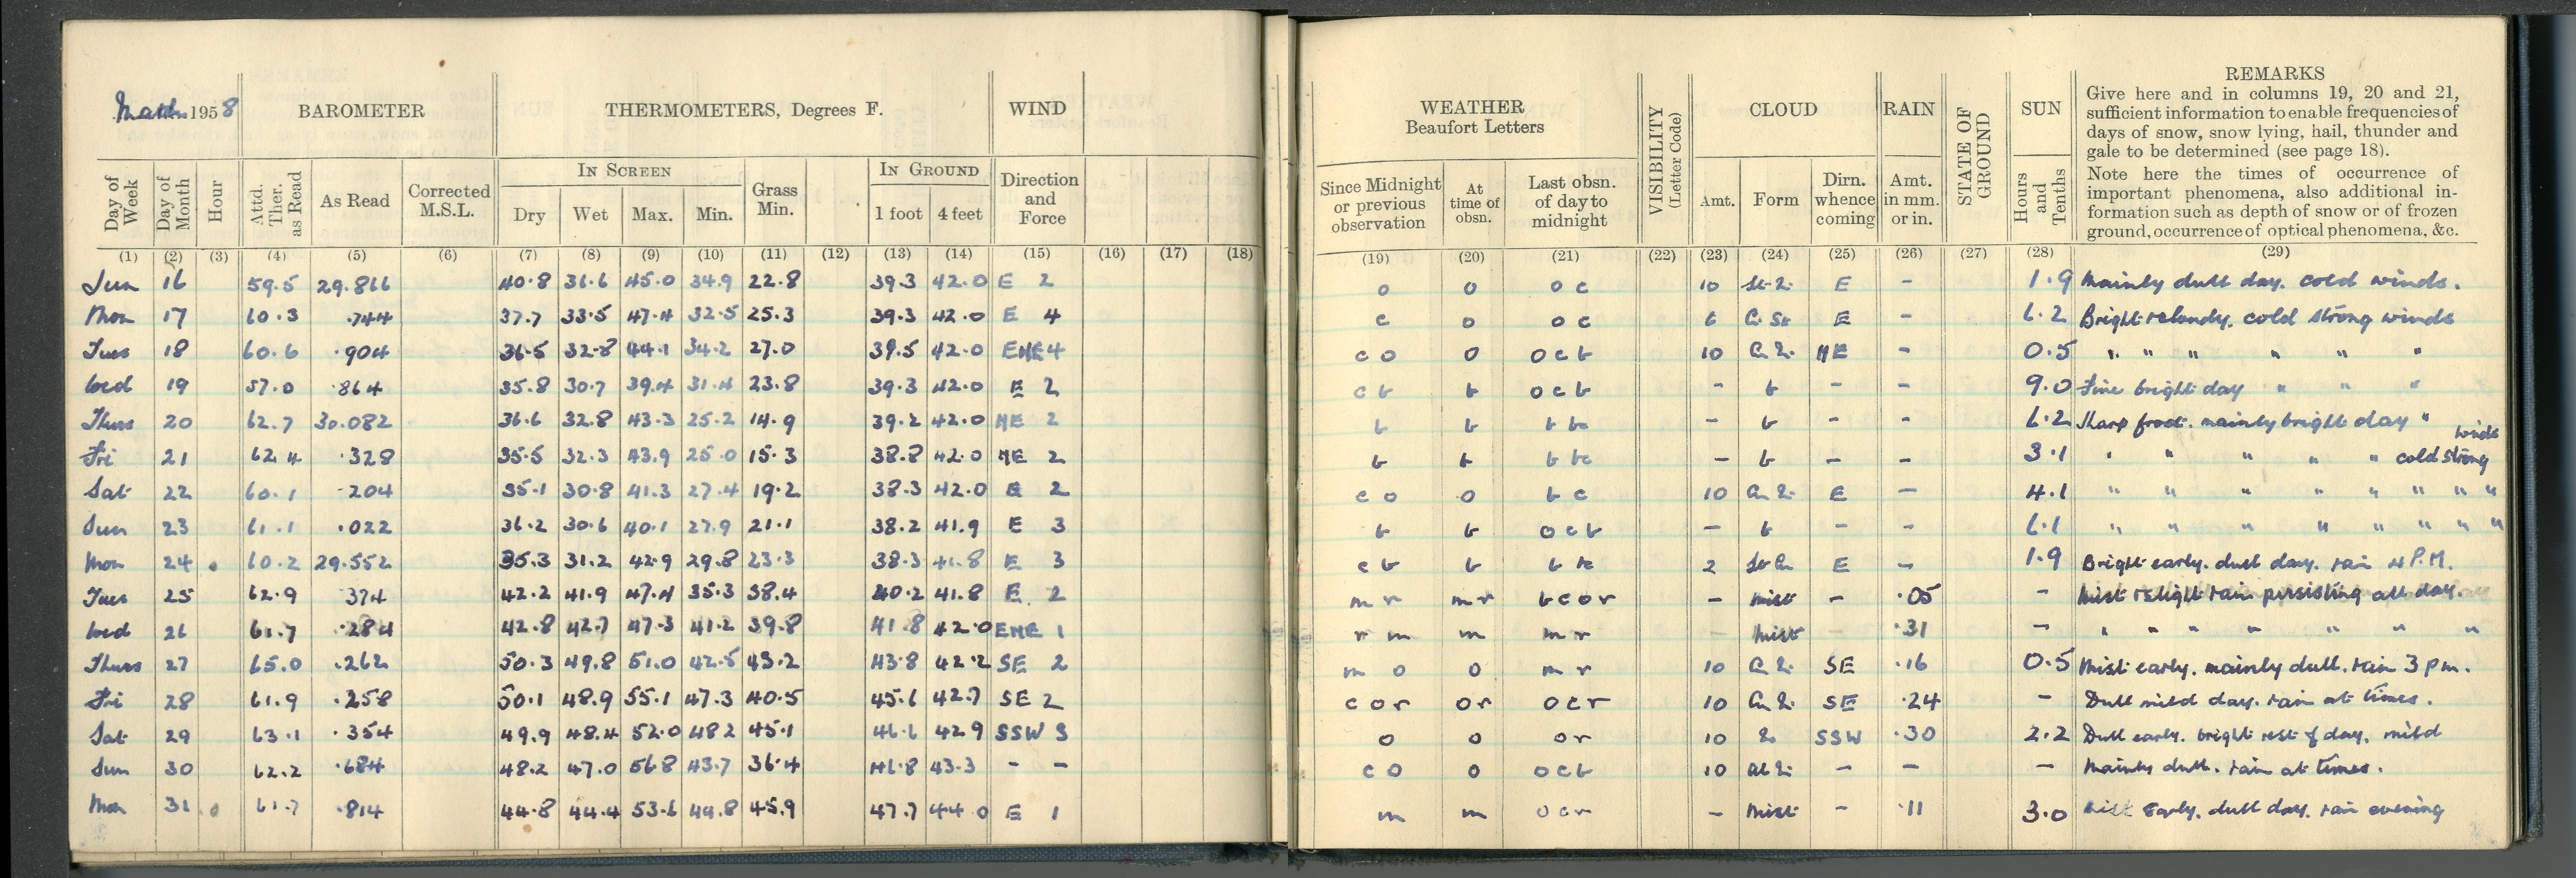 March 1958 BAROMETER THERMOMETERS, Degrees F. WIND
Day of Week Day of Month Hour Attd. Ther. as Read As Read Corrected M.S.L. IN SCREEN Dry Wet Max. Min. Grass Min. IN GROUND 1 foot 4 feet Direction and Force
(1) (2) (3) (4) (5) (6) (7) (8) (9) (10) (11) (12) (13) (14) (15) (16) (17) (18)
Sun 16 59.5 29.866 40.8 36.6 45.0 34.9 22.8 39.3 42.0 E 2
Mon 17 60.3 .744 37.7 33.5 47.4 32.5 25.3 39.3 42.0 E 4
Tues 18 60.6 .904 36.5 32.8 44.1 34.2 27.0 39.5 42.0 ENE 4
Wed 19 57.0 .864 35.8 30.7 39.4 31.4 23.8 39.3 42.0 E 2
Thurs 20 62.7 30.082 36.6 32.8 43.3 25.2 14.9 39.2 42.0 NE 2
Fri 21 62.4 .328 35.5 32.3 43.9 25.0 15.3 38.8 42.0 NE 2
Sat 22 60.1 .204 35.1 30.8 41.3 27.4 19.2 38.3 42.0 E 2
Sun 23 61.1 .022 36.2 30.6 40.1 27.9 21.1 38.2 41.9 E 3
Mon 24 60.2 29.552 35.3 31.2 42.9 29.8 23.3 38.3 41.8 E 3
Tues 25 62.9 374 42.2 41.9 47.4 35.3 38.4 40.2 41.8 E 2
Wed 26 61.7 .284 42.8 42.7 47.3 41.2 39.8 41.8 42.0 ENE 1
Thurs 27 65.0 .262 50.3 49.8 51.0 42.5 43.2 43.8 42.2 SE 2
Fri 28 61.9 .258 50.1 48.9 55.1 47.3 40.5 45.6 42.7 SE 2
Sat 29 63.1 .354 49.9 48.4 52.0 48.2 45.1 46.6 42.9 SSW 3
Sun 30 62.2 .684 48.2 47.0 56.8 43.7 36.4 46.8 43.3 - -
Mon 31 61.7 .814 44.8 44.4 53.6 44.8 45.9 47.7 44.0 E 1
WEATHER Beaufort Letters VISIBILITY (Letter Code) CLOUD RAIN STATE OF GROUND SUN REMARKS
Give here and in columns 19, 20 and 21,
sufficient information to enable frequencies of
days of snow, snow lying, hail, thunder and
gale to be determined (see page 18).
Note here the times of occurrence of
important phenomena, also additional in-
formation such as depth of snow or of frozen
ground, occurrence of optical phenomena, &c.
Since Midnight or previous observation At time of obsn. Last obsn. of day to midnight Amt. Form Dirn. whence coming Amt. in mm. or in. Hours and Tenths
(19) (20) (21) (22) (23) (24) (25) (26) (27) (28) (29)
o o o c 10 E - 1.9 Mainly dull day. cold winds.
c o o c 6 E - 6.2 Bright & cloudy. cold strong winds
c o o o c b 10 NE - 0.5 " " " " " "
c b b o c b - b - - 9.0 Fine bright day " " "
b b b bc - b - - 6.2 Sharp frost. mainly bright day "
b b b bc - b - - 3.1 " " " " " cold strong winds
c o o b c 10 E - 4.1 " " " " " " " "
b b o c b - b - - 6.1 " " " " " " " "
c b b b bc 2 E - 1.9 Bright early. dull day. rain 4 P.M.
m r m r b c o r - mist - .05 - Mist & slight rain persisting all day.
r m m m r mist .31 - " " " " " " "
m o o m r 10 SE .16 0.5 Mist early. mainly dull. rain 3 pm.
c o r o r o c r 10 SE .24 - Dull mild day. rain at times.
o o o r 10 SSW .30 2.2 Dull early. bright rest of day. mild
c o o o c b 10 - - - Mainly dull. rain at times.
m m o c r - mist - .11 3.0 Mist early. dull day. rain evening